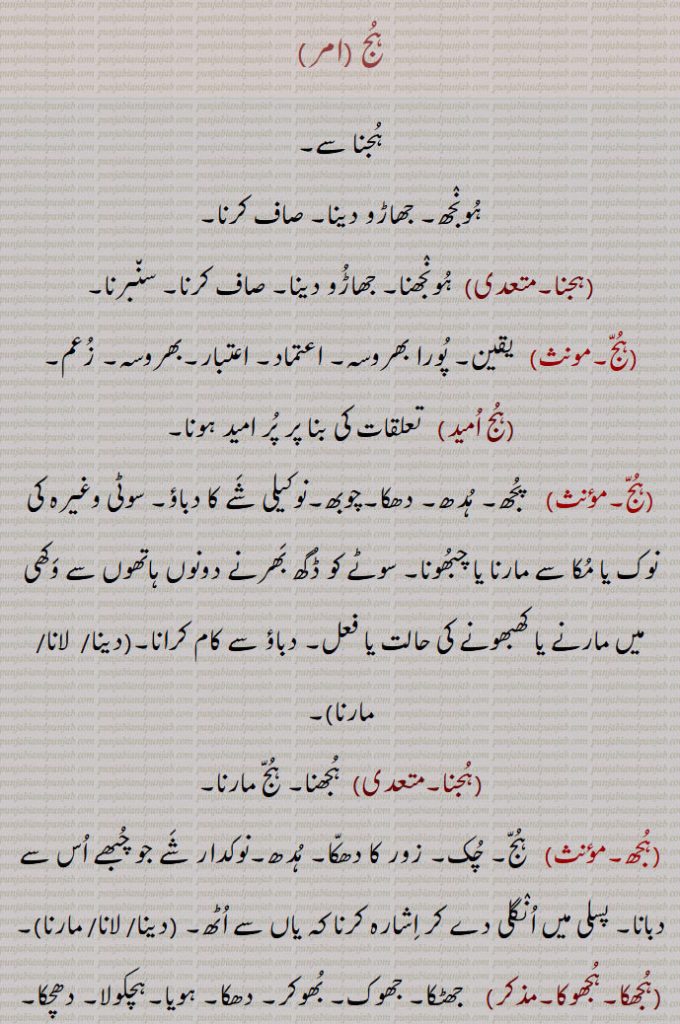 ہُج (امر)
ہُجنا سے۔
ہُونْجھ۔ جھاڑو دینا۔ صاف کرنا۔
(ہجنا۔متعدی) ہُونْجھنا۔ جھاڑُو دینا۔ صاف کرنا۔ سنّبرنا۔
(ہُجّ۔مونث) یقین۔ پُورا بھروسہ۔ اعتماد۔ اعتبار۔بھروسہ۔ زُعم۔
(ہُج اُمید) تعلقات کی بنا پر پُر امید ہونا۔
(ہُجّ۔مؤنث) ہُدھ۔ دھکا۔چوبھ۔نوکیلی شَے کا دباؤ۔ سوٹی وغیرہ کی
نوک یا مُکا سے مارنا یا چبُھونا۔ سوٹے کو ڈگھ بَھرنے دونوں ہاتھوں سے وَکھی
میں مارنے یا کھبھونے کی حالت یا فعل۔ دباؤ سے کام کرانا۔(دینا/ لانا/
مارنا)۔
(ہُجنا۔متعدی) ہُجھنا۔ ہُجّ مارنا۔
(ہُجھ۔مؤنث) ہُجّ۔ چُک۔ زور کا دھکّا۔ ہُدھ۔نوکدار شَے جو چُبھے اُس سے
دبانا۔ پسلی میں اُنْگلی دے کر اِشارہ کرنا کہ یاں سے اُٹھ۔ (دینا/ لانا/ مارنا)۔
(ہُجھکا۔ہُجھوکا۔مذکر) جھٹکا۔ جھوک۔ بُھوکر۔ دھکا۔ ہویا۔ہچکولا۔ دھچکا۔